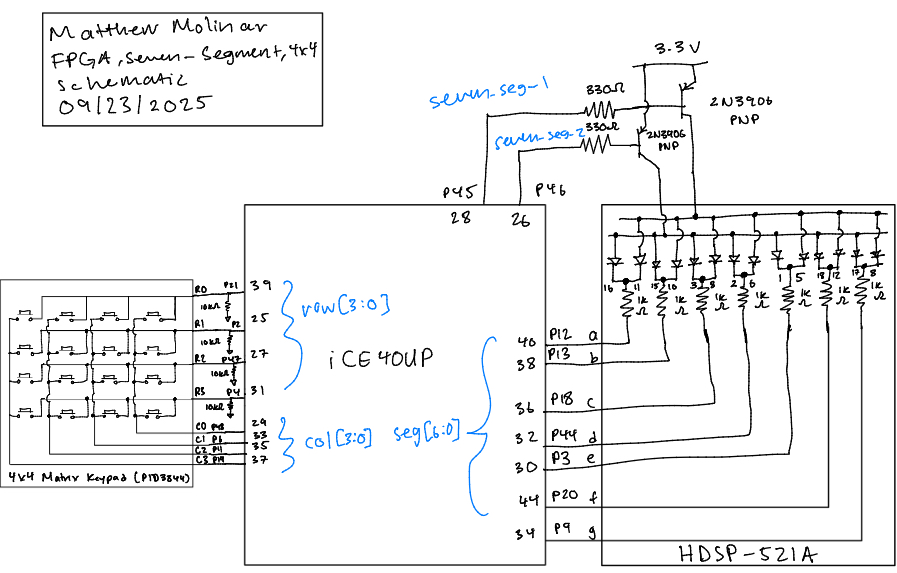 Matthew Molinar
FPGA, Seven-Segment, 4x4
Schematic
09/23/2025
3.3V
seven-seg-1
330Ω
2N3906
PNP
seven-seg-2
330Ω
2N3906
PNP
P45
28
P46
26
R0
P21
39
10kΩ
R1
P2
25
10kΩ
R2
P47
27
10kΩ
R3
P4
31
10kΩ
row[3:0]
iCE40UP
C0
P48
29
C1
P6
33
C2
P11
35
C3
P19
37
col[3:0]
seg[6:0]
4x4 Matrix Keypad (PID3844)
40
P12
a
38
P13
b
36
P18
c
32
P44
d
30
P3
e
44
P20
f
34
P9
g
16
11
15
10
3
8
2
6
1
5
18
12
17
1kΩ
1kΩ
1kΩ
1kΩ
1kΩ
1kΩ
1kΩ
HDSP-521A